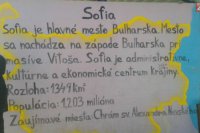 Sofia
Sofia je hlavné mesto Bulharska. Mesto
sa nachádza na západe Bulharska pri
masíve Vitoša. Sofia je administratívne,
kultúrne a ekonomické centrum krajiny.
Rozloha: 1349 km²
Populácia: 1,203 milióna
Zaujímavé miesta: Chrám sv. Alexandra Nevského